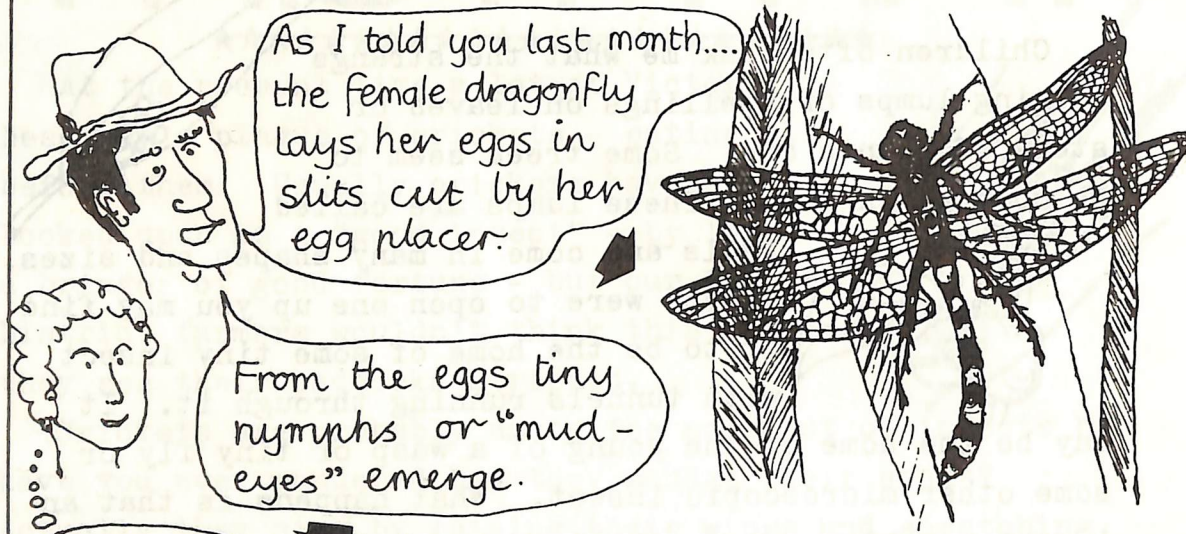 As I told you last month....
the female dragonfly
lays her eggs in
slits cut by her
egg placer.
From the eggs tiny
nymphs or "mud-
eyes" emerge.